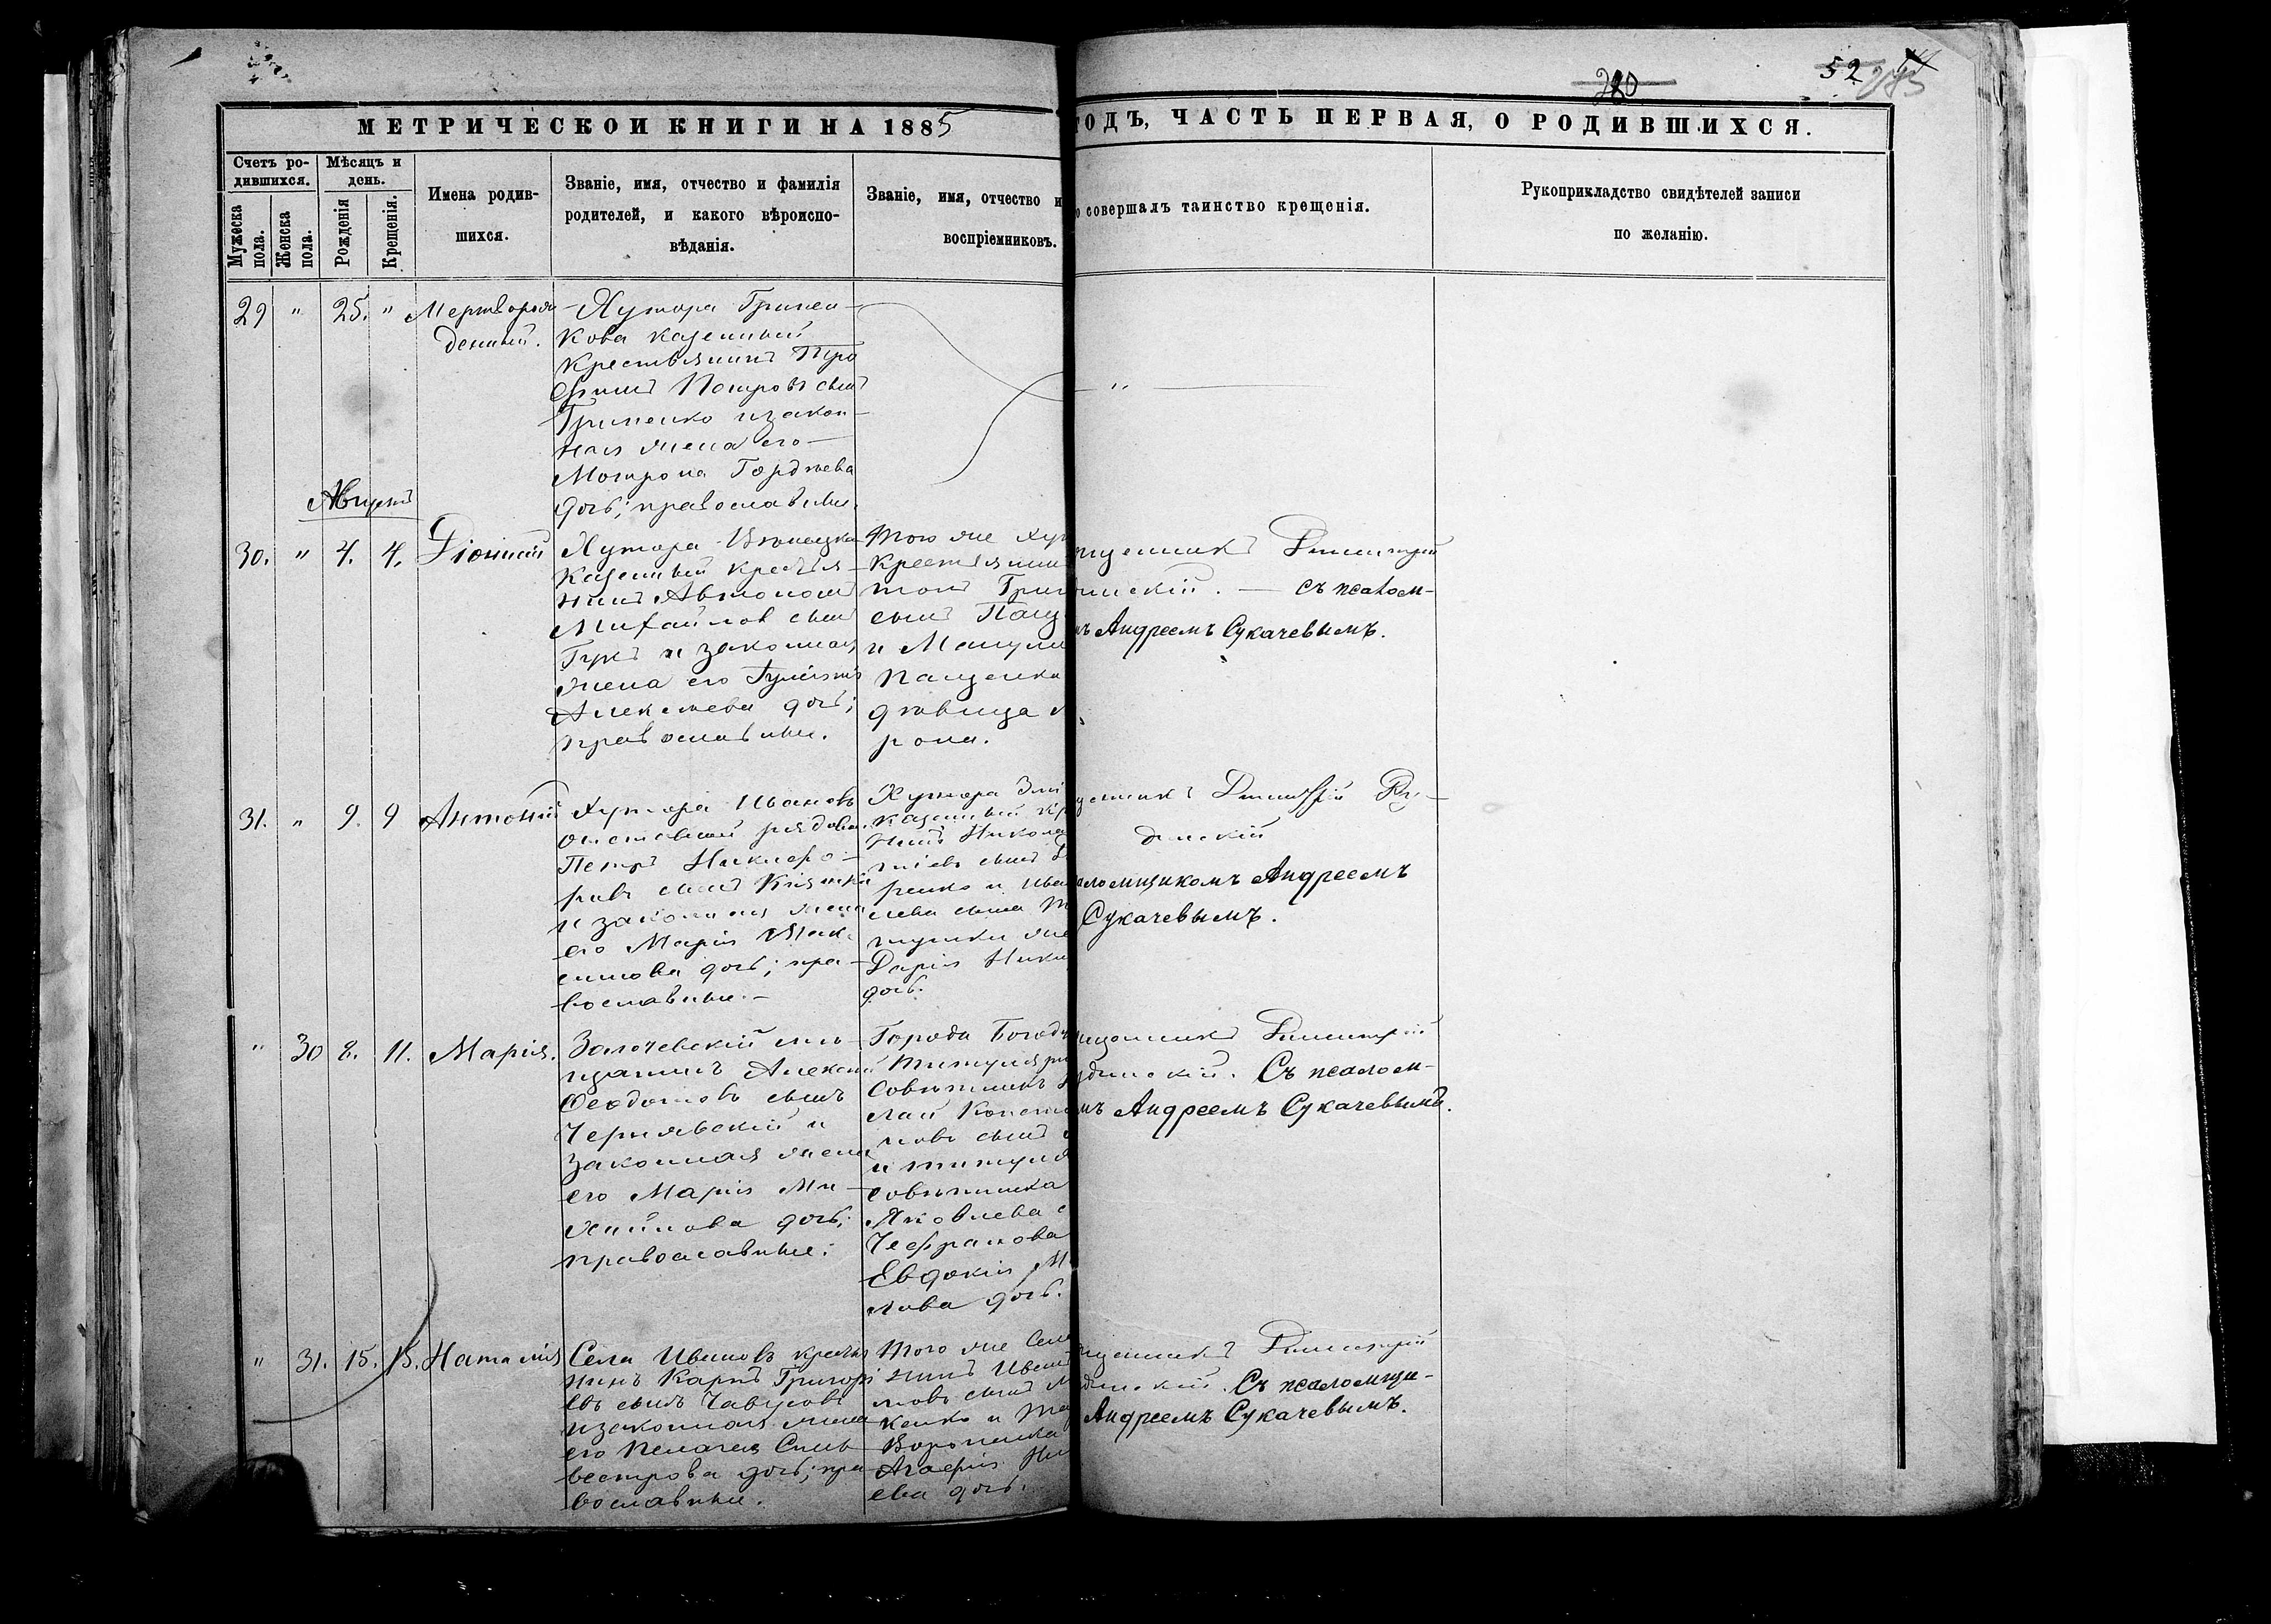 280
52
МЕТРИЧЕСКОЙ КНИГИ НА 1885
ГОДЪ, ЧАСТЬ ПЕРВАЯ, О РОДИВШИХСЯ.
Счетъ ро-
дившихся.
Мужеска
пола.
Женска
пола.
Мѣсяцъ и
день.
Рожденія
Крещенія.
Имена родив-
шихся.
Званіе, имя, отчество и фамилія
родителей, и какого вѣроиспо-
вѣданія.
Званіе, имя, отчество и
воспріемниковъ.
о совершалъ таинство крещенія.
Рукоприкладство свидѣтелей записи
по желанію.
29 " 25. " Мертворож
денный.
Хутора
кова казенный
крестьянинъ Тро
фимъ Петровъ сынъ
и закон-
ная жена его
Мотрона Гордѣева
дочь; православные.
"
Августъ
30. " 4. 4.
Хутора
казенный крестья-
нинъ Автономъ
Михайловъ сынъ
Гукъ и законная
жена его
Алексѣева дочь;
православные.
Того же хут
крестьянин
сынъ Пащ
и
Пащенка
дѣвица М
рона.
щенникъ Димитрій
инскій. — съ псалом-
мъ Андреемъ Сукачевымъ.
31. " 9. 9 Антоній
Хутора Ивановъ
отставной рядовой
Петръ Никифо-
ровъ сынъ
и законная жена
его Марія Мак-
симова дочь; пра-
вославные.-
Хутора Змі
казенный кр
нинъ Никола
сынъ
ренко и Ива
сына
жена
Дарія Ники
дочь.
щенникъ Димитрій Ру-
динскій
аломщикомъ Андреемъ
Сукачевымъ.
" 30 8. 11. Марія.
Золочевскій мѣ-
щанинъ Алексѣй
Феодотовъ сынъ
Чернявскій и
законная жена
его Марія Ми-
хайлова дочь;
православные.
Города Богоду
титуляр
совѣтникъ
лай Конста
новъ сынъ
и титуля
совѣтника
Яковлева с
Чефранова
Евдокія М
лова дочь.
щенникъ Димитрій
динскій. Съ псалом-
мъ Андреемъ Сукачевымъ.
" 31. 15. 15. Наталія
Села Ивановъ крестья
нинъ Карпъ Григорі
евъ сынъ Чавусовъ
и законная жена
его Пелагея Силь-
вестрова дочь; пра-
вославные.
Того же села
нинъ Иван
мовъ сынъ
кенко и
Вороненка
Агафія
ева дочь.
щенникъ Димитрій
динскій. Съ псаломщи-
Андреемъ Сукачевымъ.